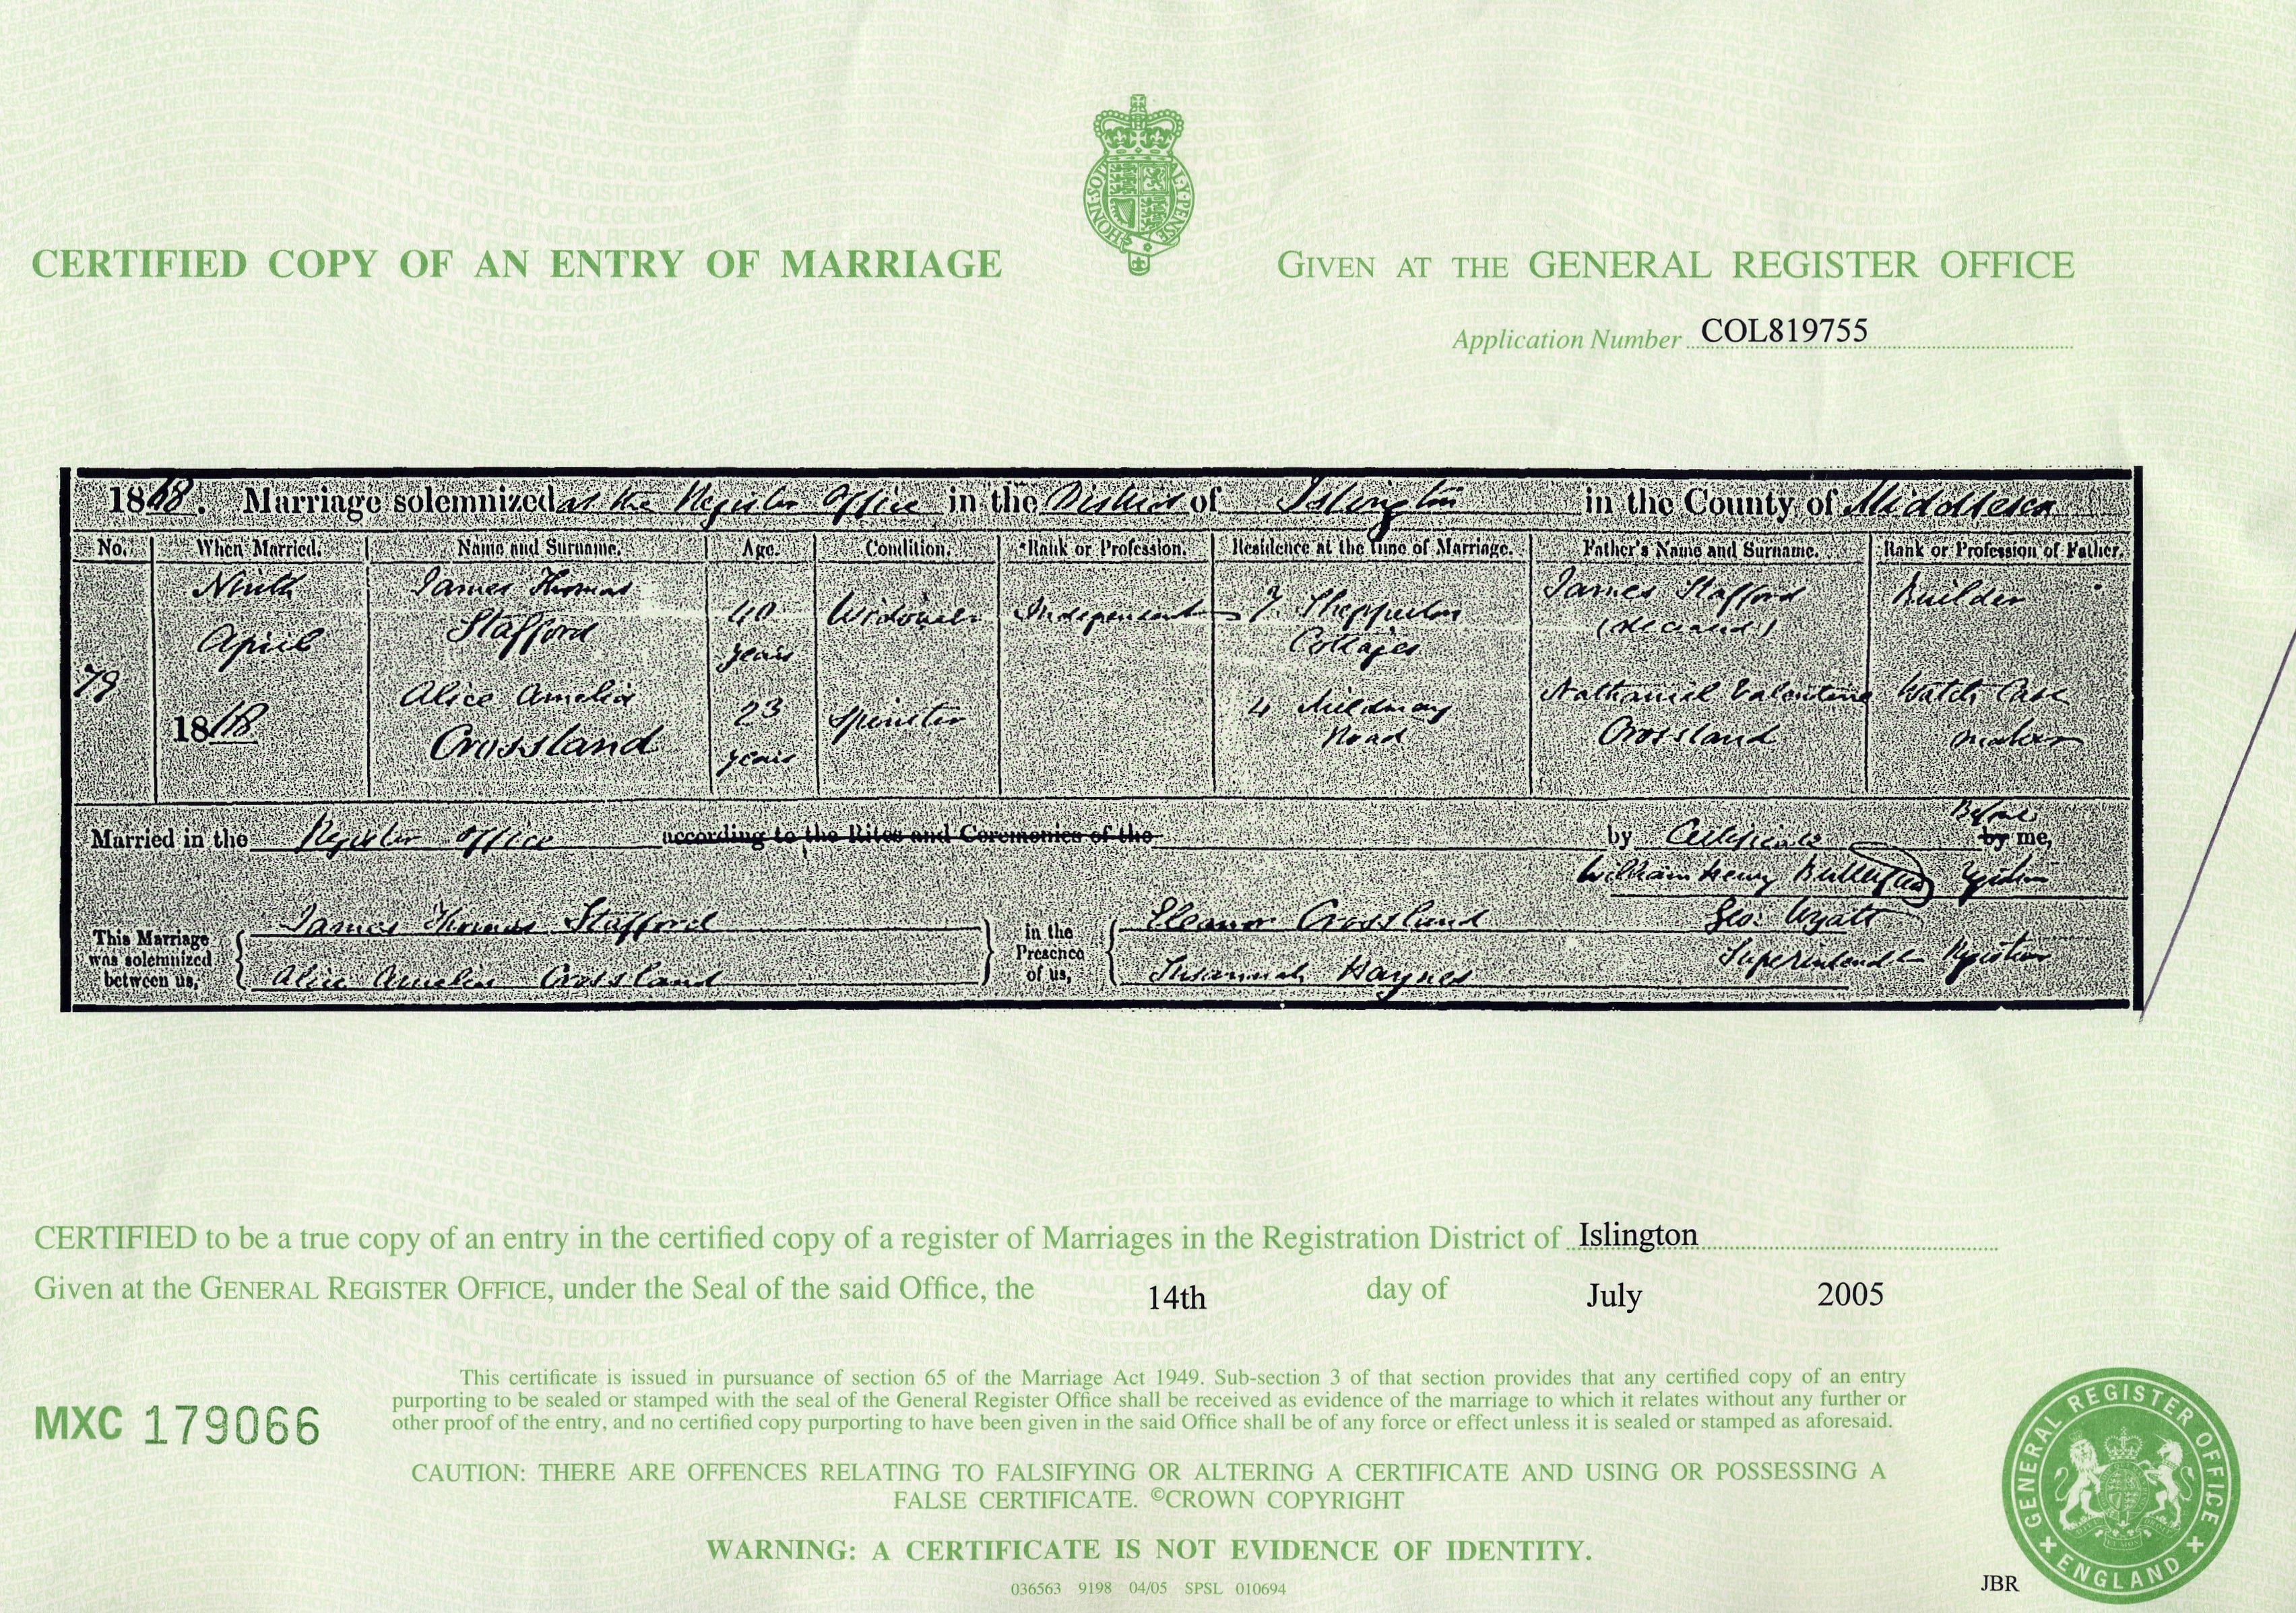 HONI·SOIT·QUI·MAL·Y·PENSE
CERTIFIED COPY OF AN ENTRY OF MARRIAGE
GIVEN AT THE GENERAL REGISTER OFFICE
Application Number COL819755
1868. Marriage solemnized at the Register Office in the District of Islington in the County of Middlesex
No. When Married. Name and Surname. Age. Condition. Rank or Profession. Residence at the time of Marriage. Father's Name and Surname. Rank or Profession of Father.
79 Ninth April 1868 James Thomas Stafford 40 years Widower Independent 7. Shepperton Cottages James Stafford (deceased) Builder
Alice Amelia Crossland 23 years Spinster 4 Mildmay Road Nathaniel Valentine Crossland Watch Case maker
Married in the Register Office according to the Rites and Ceremonies of the by Certificate Before by me,
William Henry Registrar
This Marriage was solemnized between us, James Thomas Stafford
Alice Amelia Crossland
in the Presence of us, Eleanor Crossland
Susannah Haynes
Geo: Wyatt
Superintendt Registrar
CERTIFIED to be a true copy of an entry in the certified copy of a register of Marriages in the Registration District of Islington
Given at the GENERAL REGISTER OFFICE, under the Seal of the said Office, the 14th day of July 2005
This certificate is issued in pursuance of section 65 of the Marriage Act 1949. Sub-section 3 of that section provides that any certified copy of an entry
purporting to be sealed or stamped with the seal of the General Register Office shall be received as evidence of the marriage to which it relates without any further or
other proof of the entry, and no certified copy purporting to have been given in the said Office shall be of any force or effect unless it is sealed or stamped as aforesaid.
MXC 179066
CAUTION: THERE ARE OFFENCES RELATING TO FALSIFYING OR ALTERING A CERTIFICATE AND USING OR POSSESSING A
FALSE CERTIFICATE. ©CROWN COPYRIGHT
WARNING: A CERTIFICATE IS NOT EVIDENCE OF IDENTITY.
036563 9198 04/05 SPSL 010694
JBR
GENERAL REGISTER OFFICE
ENGLAND